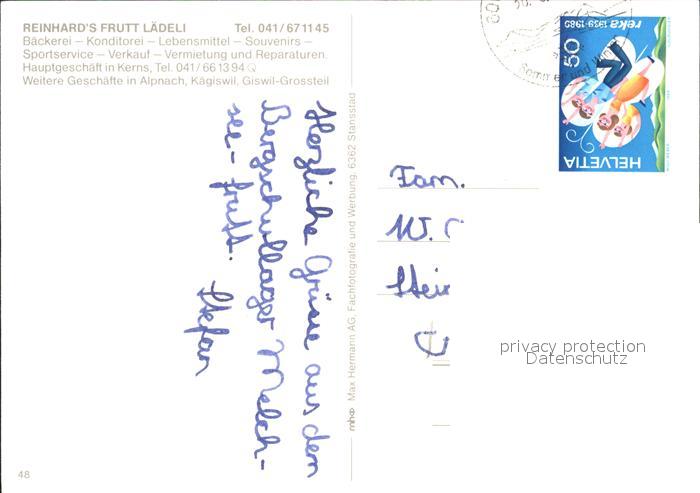 REINHARD'S FRUTT LÄDELI Tel. 041/67 11 45
Bäckerei – Konditorei – Lebensmittel – Souvenirs –
Sportservice – Verkauf – Vermietung und Reparaturen.
Hauptgeschäft in Kerns, Tel. 041/66 13 94
Weitere Geschäfte in Alpnach, Kägiswil, Giswil-Grossteil
Herzliche Grüsse aus dem
Bergschullager Melch-
see-frutt.
Stefan
mh Max Hermann AG, Fachfotografie und Werbung, 6362 Stansstad
Fam.
W.
50
reka 1939-1989
HELVETIA
Sommer und
privacy protection
Datenschutz
48